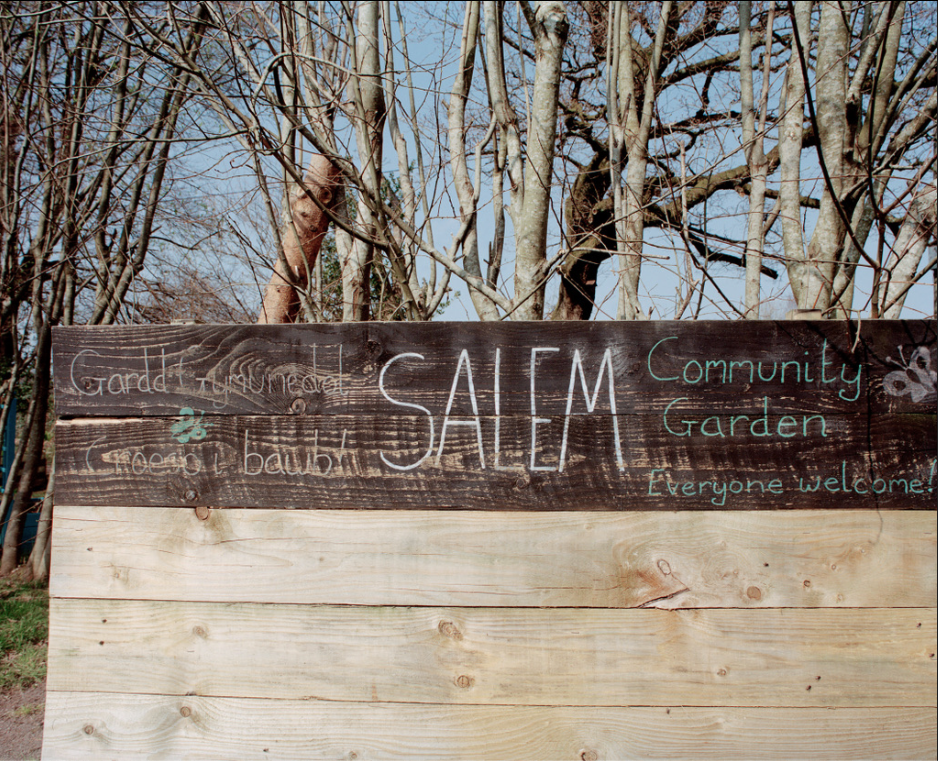 Gardd Gymunedol
Croeso i bawb!
SALEM
Community
Garden
Everyone welcome!